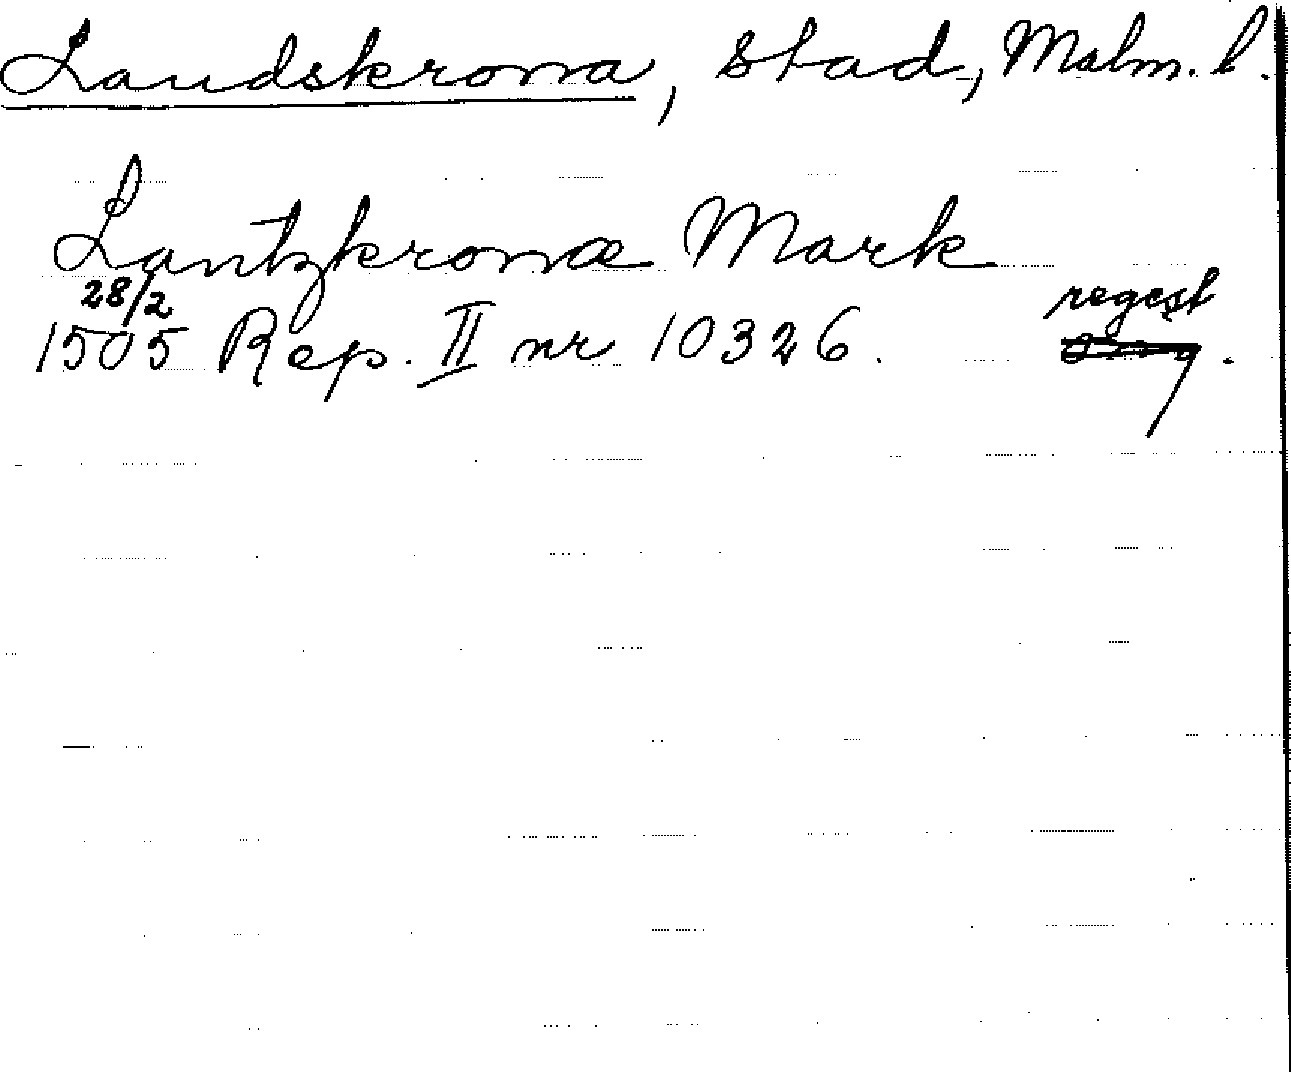 Landskrona, stad, Malm. l.
Lantzkronæ Mark
28/2 regest
1505 Rep. II nr 10326.